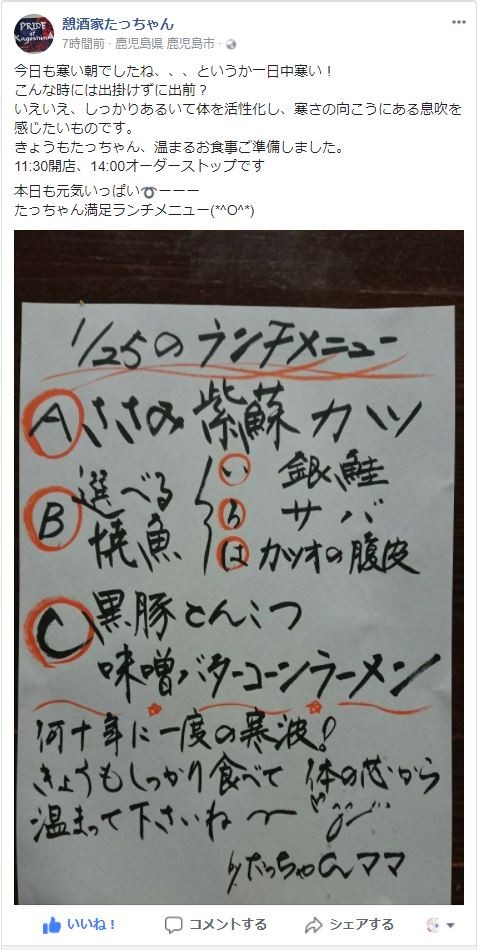 PRIDE
of
Kagoshima
憩酒家たっちゃん
7時間前・鹿児島県 鹿児島市・
今日も寒い朝でしたね、、、というか一日中寒い！
こんな時には出掛けずに出前？
いえいえ、しっかりあるいて体を活性化し、寒さの向こうにある息吹を
感じたいものです。
きょうもたっちゃん、温まるお食事ご準備しました。
11:30開店、14:00オーダーストップです
本日も元気いっぱい➰ーーー
たっちゃん満足ランチメニュー(*^O^*)
1/25のランチメニュー
A ささみ紫蘇カツ
B 選べる焼魚
い 銀鮭
ろ サバ
は カツオの腹皮
C 黒豚とんこつ
味噌バターコーンラーメン
何十年に一度の寒波!
きょうもしっかり食べて 体の芯から
温まって下さいね〜
by たっちゃんママ
いいね！ コメントする シェアする